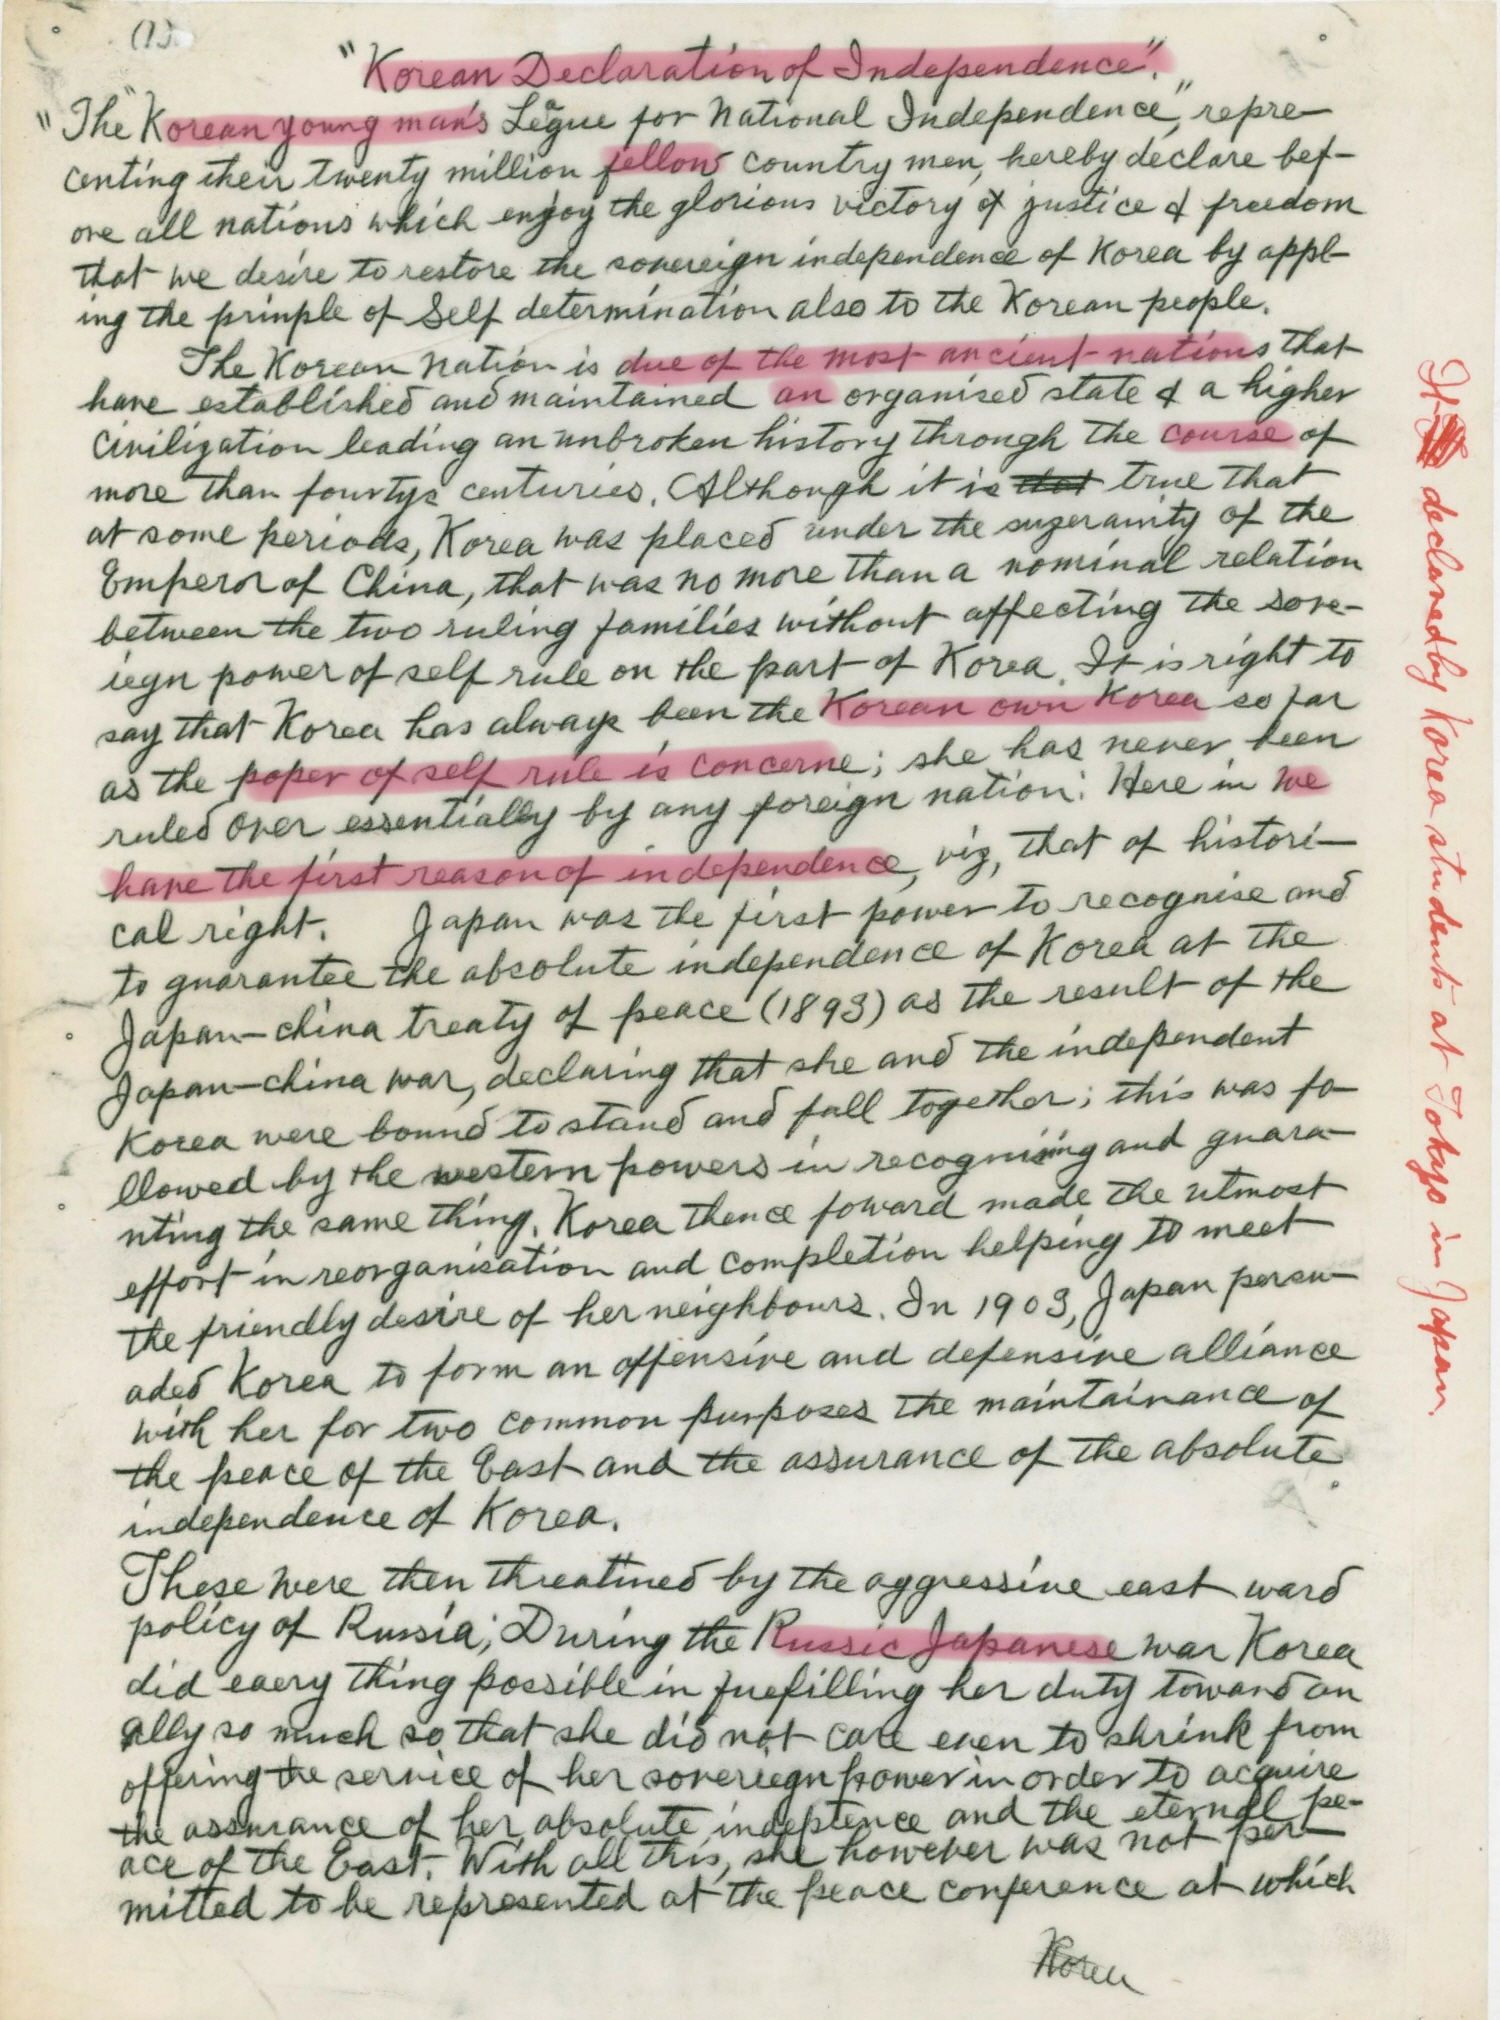 (1).
"Korean Declaration of Independence".
"The "Korean young man's Legue for National Independence", repre-
centing their twenty million fellow country men, hereby declare bef-
ore all nations which enjoy the glorious victory of justice & freedom
that we desire to restore the sovereign independence of Korea by appl-
ing the prinple of Self determination also to the Korean people.
The Korean Nation is due of the most ancient nations that
have established and maintained an organised state & a higher
civilization leading an unbroken history through the course of
more than fourtys centuries. Although it is that true that
at some periods, Korea was placed under the suzerainity of the
Emperor of China, that was no more than a nominal relation
between the two ruling families without affecting the sove-
iegn power of self rule on the part of Korea. It is right to
say that Korea has always been the Korean own Korea so far
as the poper of self rule is concerne; she has never been
ruled over essentially by any foreign nation. Here in we
have the first reason of independence, viz, that of histori-
cal right. Japan was the first power to recognise and
to guarantee the absolute independence of Korea at the
Japan-china treaty of peace (1893) as the result of the
Japan-china war, declaring that she and the independent
Korea were bound to stand and fall together; this was fo-
llowed by the western powers in recognising and guara-
nting the same thing. Korea thence foward made the utmost
effort in reorganisation and completion helping to meet
the friendly desire of her neighbours. In 1903, Japan persu-
aded Korea to form an offensive and defensive alliance
with her for two common purposes the maintainance of
the peace of the East and the assurance of the absolute
independence of Korea.
These were then threatined by the aggressive east ward
policy of Russia; During the Russic Japanese war Korea
did eaery thing possible in fuefilling her duty toward an
ally so much so that she did not care even to shrink from
offering the service of her sovereign power in order to acquire
the assurance of her absolute indeptence and the eternal pe-
ace of the East. With all this, she however was not per-
mitted to be represented at the peace conference at which
Korea
It declared by Korea students at Tokyo in Japan.